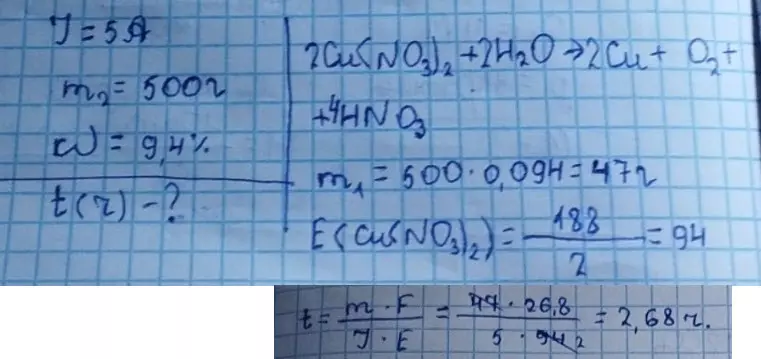 J = 5A
m₂ = 500г
ω = 9,4%
t(ч) - ?
2Cu(NO₃)₂ + 2H₂O → 2Cu + O₂ +
+ 4HNO₃
m₁ = 500 · 0,094 = 47г
E(Cu(NO₃)₂) = 188/2 = 94
t = m · F / J · E = 47 · 26,8 / 5 · 94 2 = 2,68 ч.